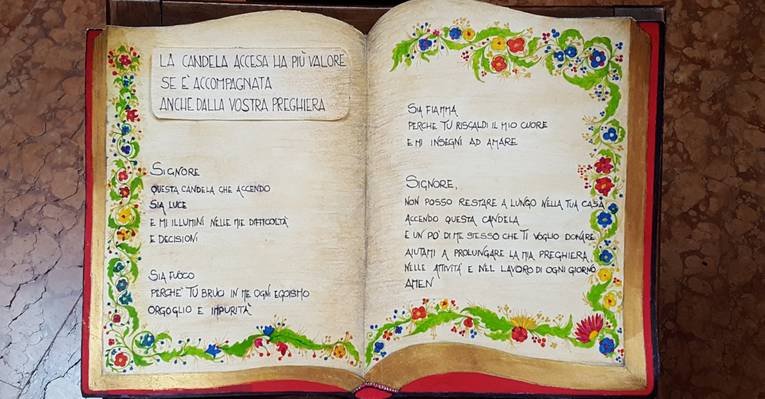 LA CANDELA ACCESA HA PIÙ VALORE
SE E' ACCOMPAGNATA
ANCHE DALLA VOSTRA PREGHIERA
SIGNORE
QUESTA CANDELA CHE ACCENDO
SIA LUCE
E MI ILLUMINI NELLE MIE DIFFICOLTÀ
E DECISIONI
SIA FUOCO
PERCHE' TU BRUCI IN ME OGNI EGOISMO
ORGOGLIO E IMPURITÀ
SIA FIAMMA
PERCHE TU RISCALDI IL MIO CUORE
E MI INSEGNI AD AMARE
SIGNORE,
NON POSSO RESTARE A LUNGO NELLA TUA CASA
ACCENDO QUESTA CANDELA
E UN PO' DI ME STESSO CHE TI VOGLIO DONARE
AIUTAMI A PROLUNGARE LA MIA PREGHIERA
NELLE ATTIVITÀ E NEL LAVORO DI OGNI GIORNO
AMEN